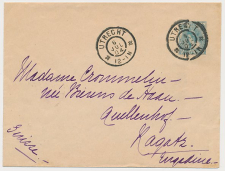 UTRECHT
12-1N
UTRECHT
12-1N
Madame Crommelin-
née Berens de Haan
Quellenhof-
Ragatz
Engadine
Suisse